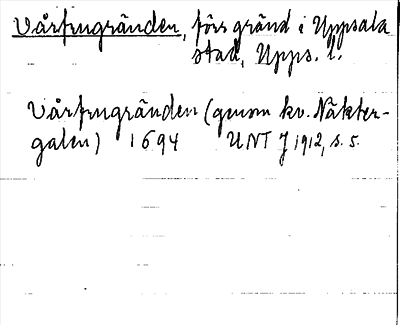 Vårfrugränden, förs gränd i Uppsala
stad, Upps. l.
Vårfrugränden (genom kv. Näkter-
galen) 1694 UNT J 1912, s. 5.